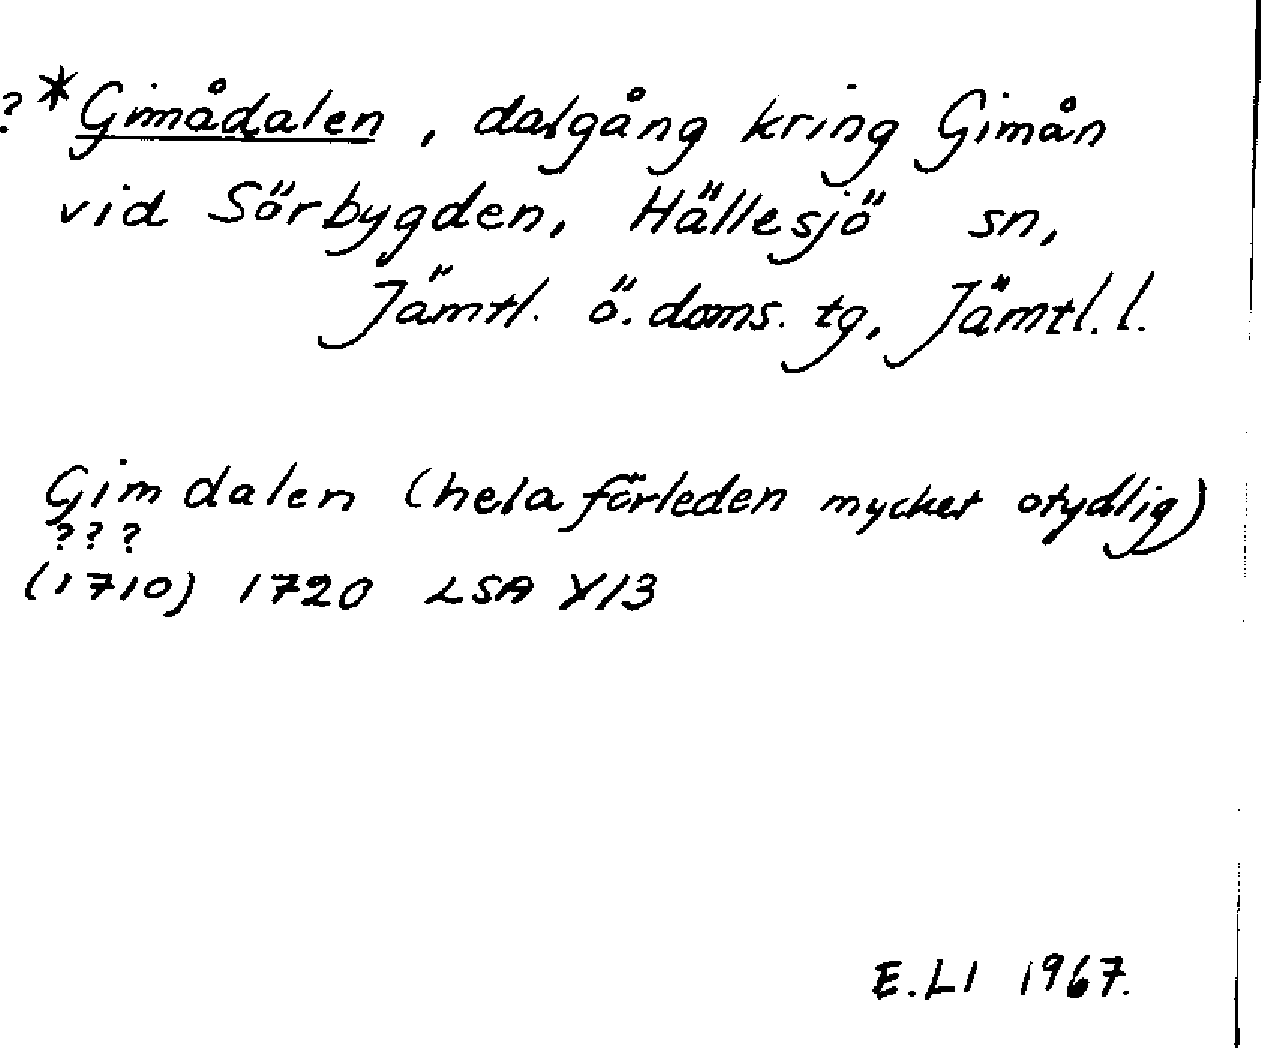 ?*Gimådalen, dalgång kring Gimån
vid Sörbygden, Hällesjö sn,
Jämtl. ö. doms. tg, Jämtl. l.
Gimdalen (hela förleden mycket otydlig)
? ? ?
(1710) 1720 LSA Y13
E.LI 1967.